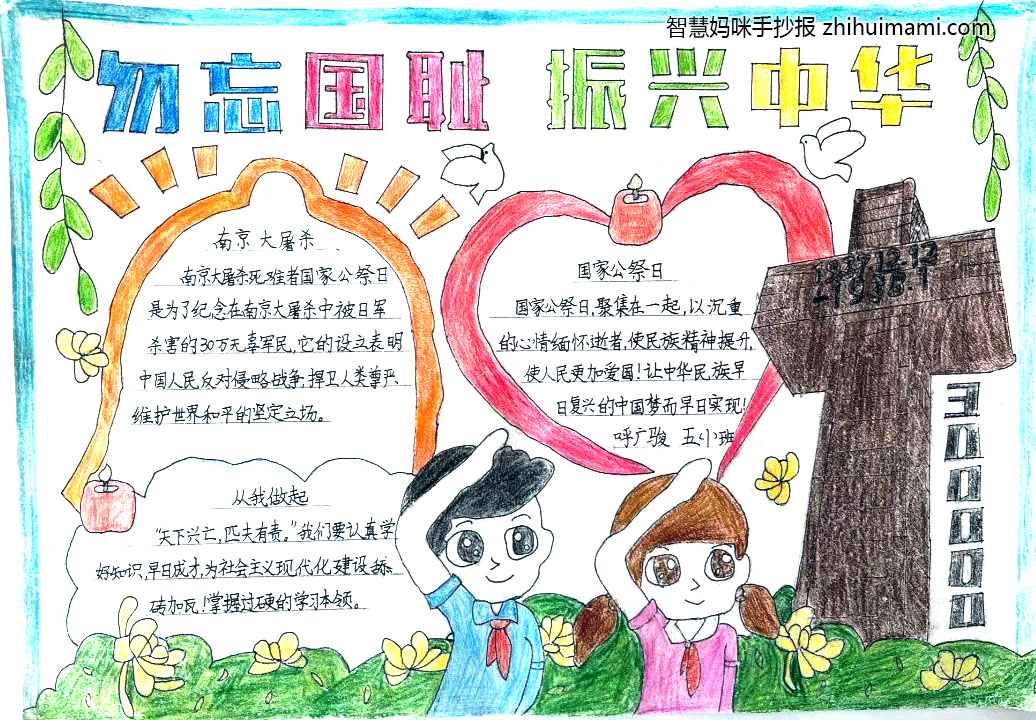 智慧妈咪手抄报 zhihuimami.com
勿忘国耻 振兴中华
南京大屠杀
南京大屠杀死难者国家公祭日
是为了纪念在南京大屠杀中被日军
杀害的30万无辜军民,它的设立表明
中国人民反对侵略战争,捍卫人类尊严、
维护世界和平的坚定立场。
国家公祭日
国家公祭日,聚集在一起,以沉重
的心情缅怀逝者,使民族精神提升,
使人民更加爱国!让中华民族早
日复兴的中国梦而早日实现!
呼广骏 五小班
从我做起
“天下兴亡,匹夫有责。”我们要认真学
好知识,早日成才,为社会主义现代化建设添
砖加瓦!掌握过硬的学习本领。
1937.12.13
-1938.1
300000